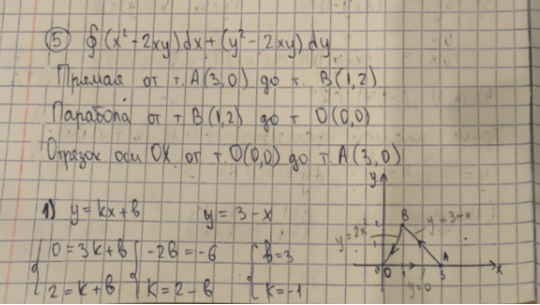 ⑤ ∮(x²-2xy)dx+(y²-2xy)dy
Прямая от т. A(3,0) до т. B(1,2)
Парабола от т B(1,2) до т O(0,0)
Отрезок оси OX от т.O(0,0) до т.A(3,0)
1) y=kx+b y=3-x
{0=3k+b {-2b=-6 {b=3
{2=k+b {k=2-b {k=-1
y
B y=3-x
y=2x²
0 1 3 A x
y=0